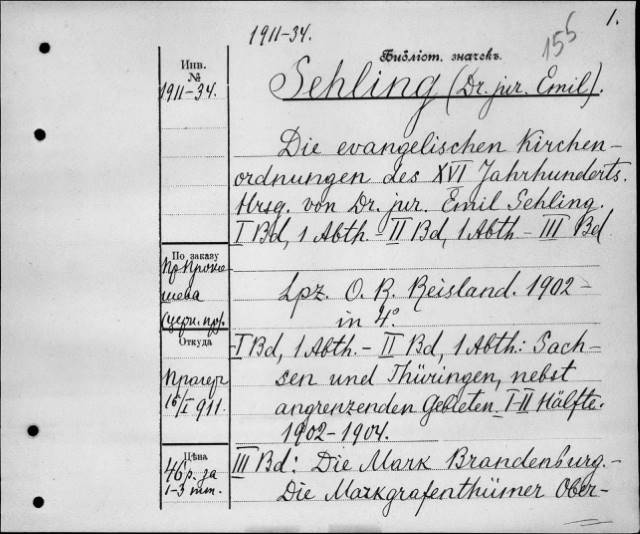 1.
1911-34.
156
Библіот. значекъ.
Инв.
№
1911-34.
Sehling (Dr. jur. Emil).
Die evangelischen Kirchen-
ordnungen des XVI Jahrhunderts.
Hrsg. von Dr. jur. Emil Sehling.
I Bd, 1 Abth. - II Bd, 1 Abth - III Bd
По заказу
Lpz. O. R. Reisland. 1902-
in 4°
Откуда
Прагер
16/I 911.
I Bd, 1 Abth. - II Bd, 1 Abth.: Sach-
sen und Thüringen, nebst
angrenzenden Gebieten. I-II Hälfte.
1902-1904.
Цѣна
46 р. за
1-3 тт.
III Bd: Die Mark Brandenburg. -
Die Markgrafenthümer Ober-